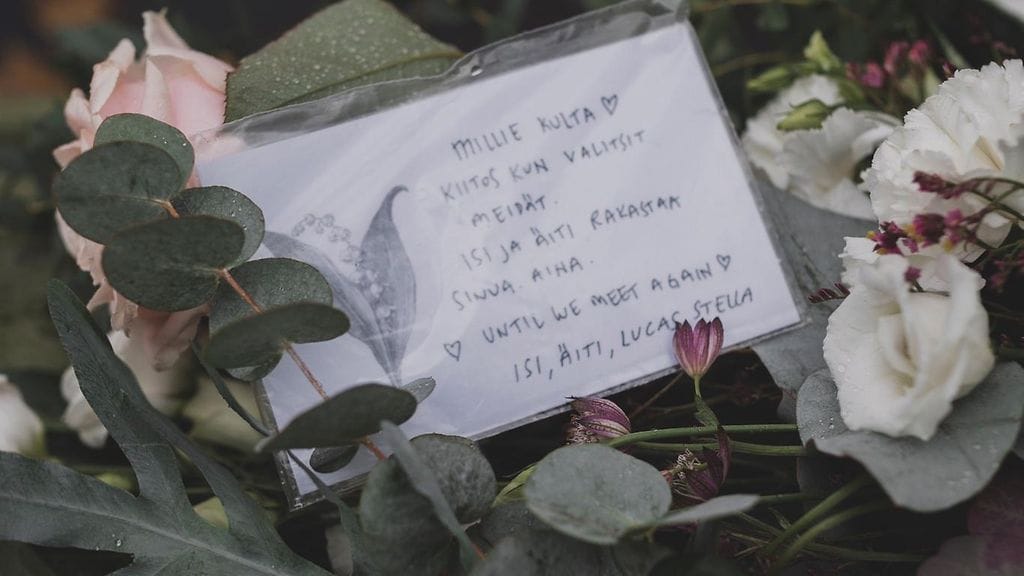 MILLIE KULTA ♡
KIITOS KUN VALITSIT
MEIDÄT.
ISI JA ÄITI RAKASTAA
SINUA. AINA.
UNTIL WE MEET AGAIN ♡
♡ ISI, ÄITI, LUCAS, STELLA